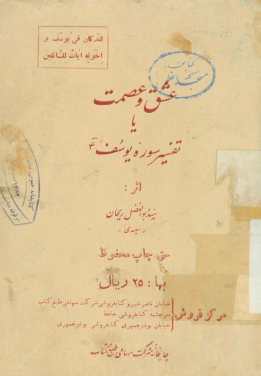 لقد کان فی یوسف و
اخوته آیات للسائلین
کتابخانه
مسجد اعظم
عشق و عصمت
یا
تفسیر سوره یوسف ع
اثر:
سید ابوالفضل ریحان
حق چاپ محفوظ
بها: ۲۵ ریال
مرکز فروش:
خیابان ناصر خسرو کتابفروشی شرکت سهامی طبع کتاب
کتابفروشی حافظ
خیابان بوذرجمهری کتابفروشی بوذرجمهری
چاپخانه شرکت سهامی طبع کتاب